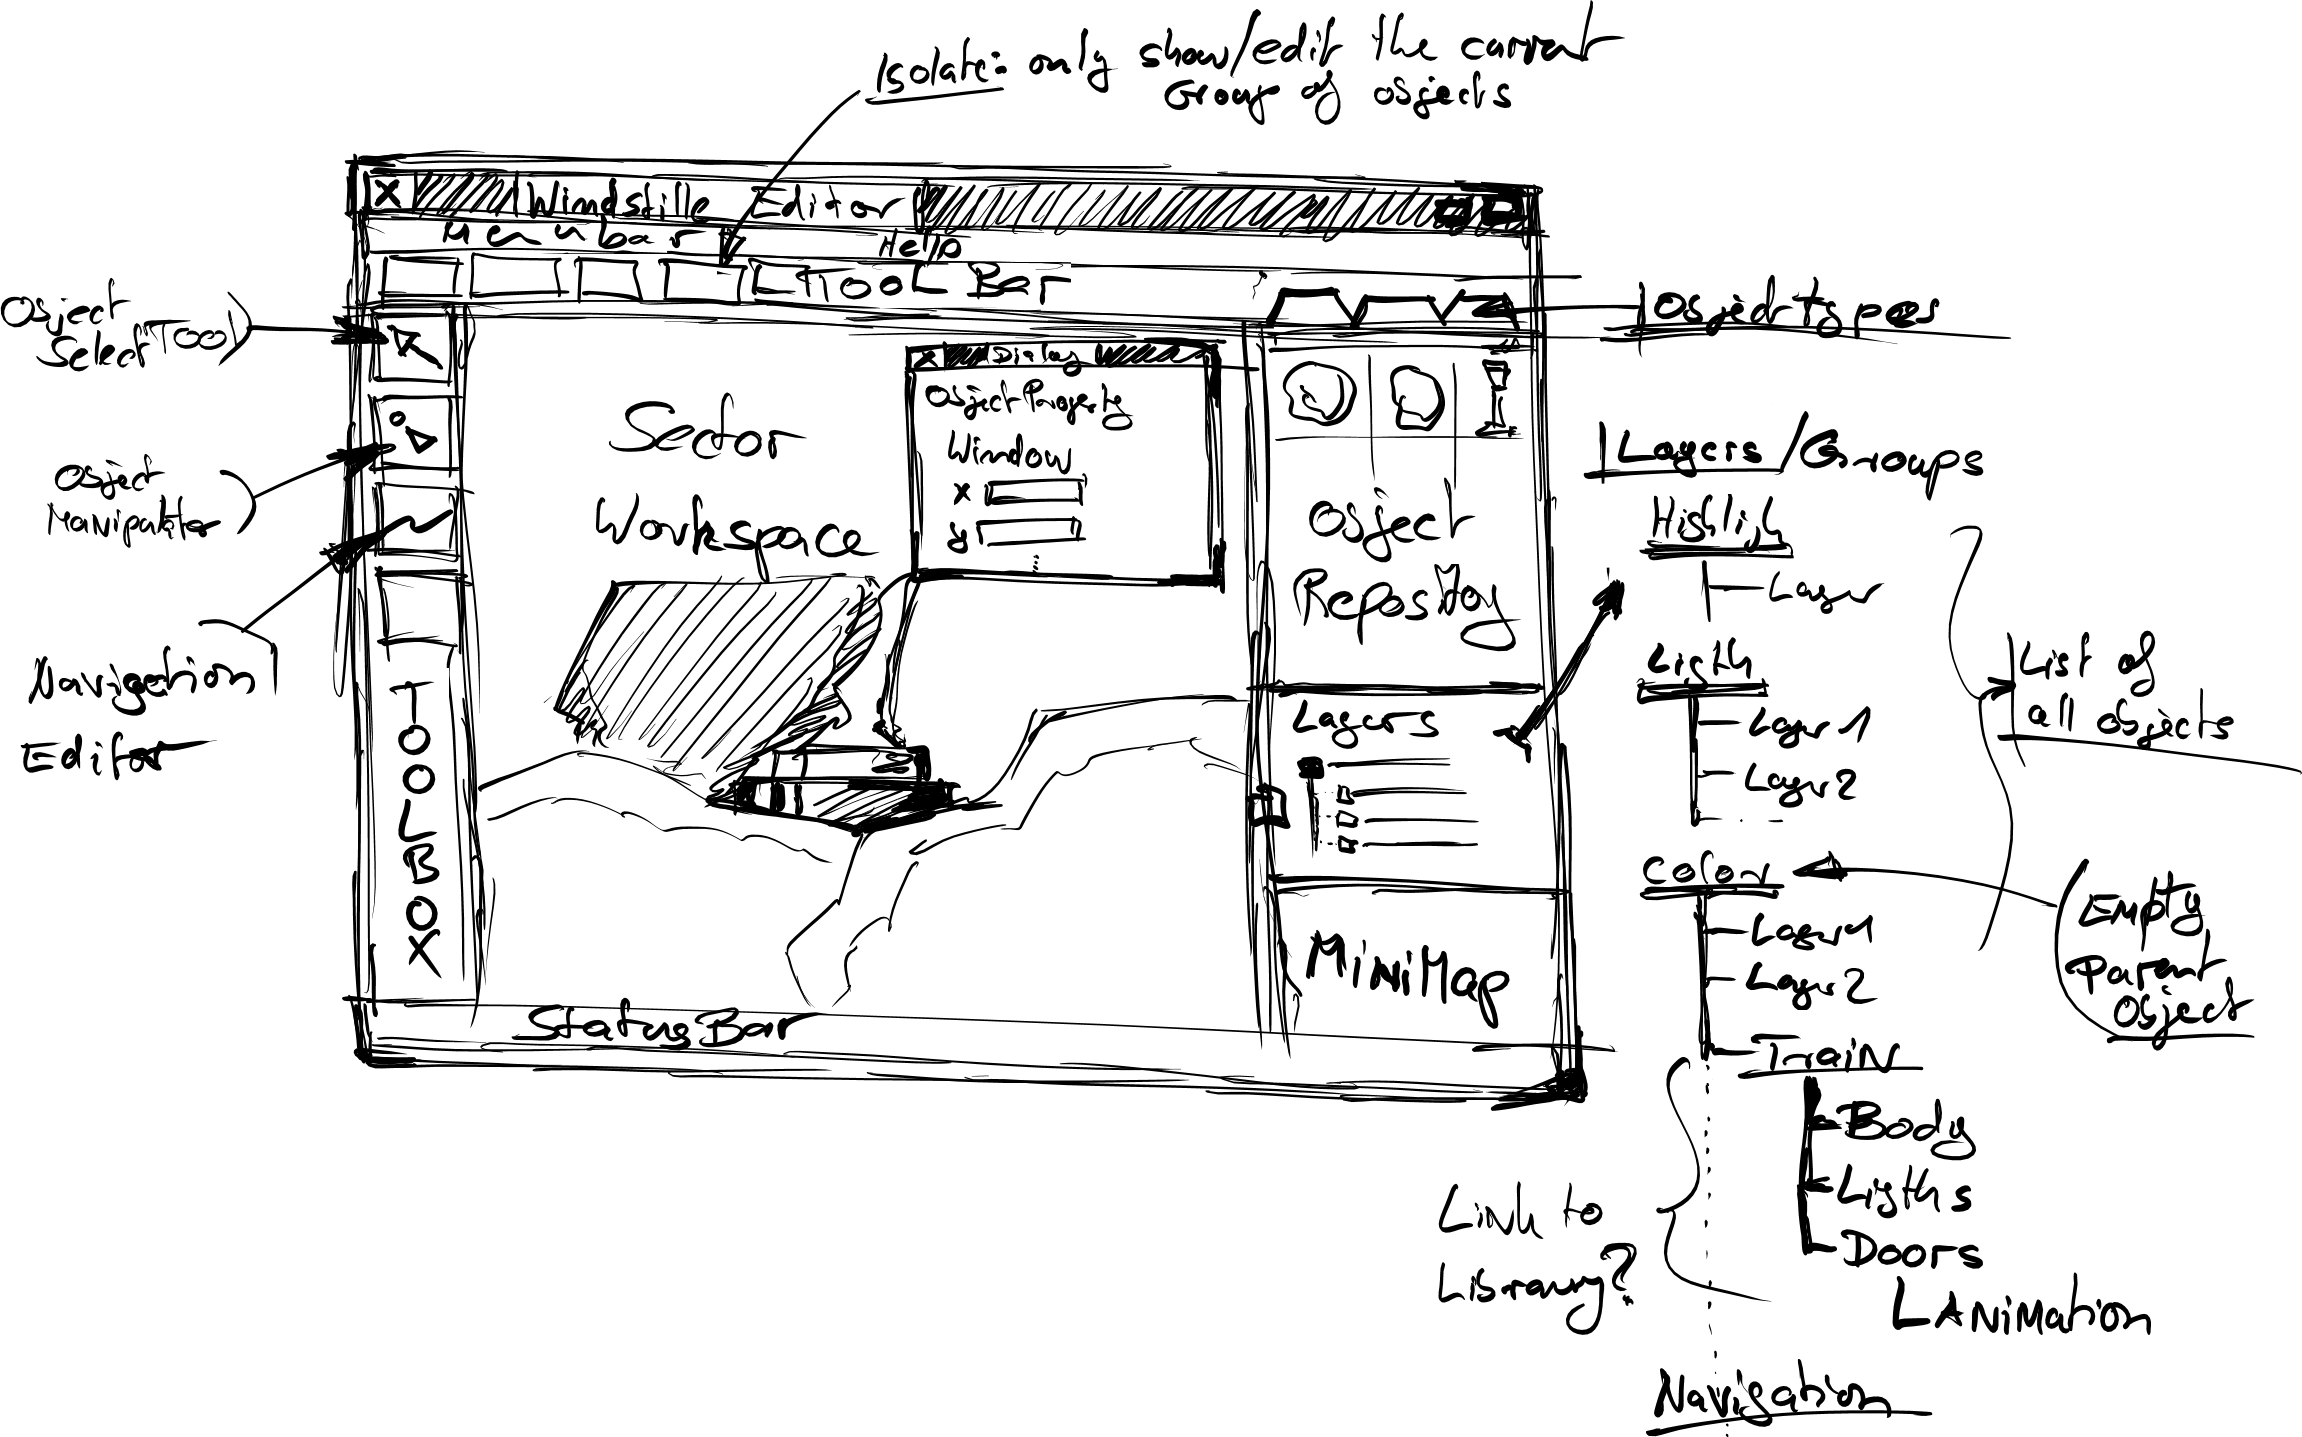 Isolate: only show/edit the current
Group of objects
X Windstille Editor
Menubar Hello
TOOL Bar
Object
Select Tool
Object
Manipulator
Navigation
Editor
TOOLBOX
Sector
Workspace
X Dialog
Object Property
Window
x
y
Objecttypes
Object
Repository
Layers
MiniMap
StatusBar
Layers/Groups
Highligh
Layer
Ligth
Layer 1
Layer 2
Color
Layer 1
Layer 2
Train
Body
Ligths
Doors
Animation
Navigation
List of
all objects
Empty
Parent
Object
Link to
Library?